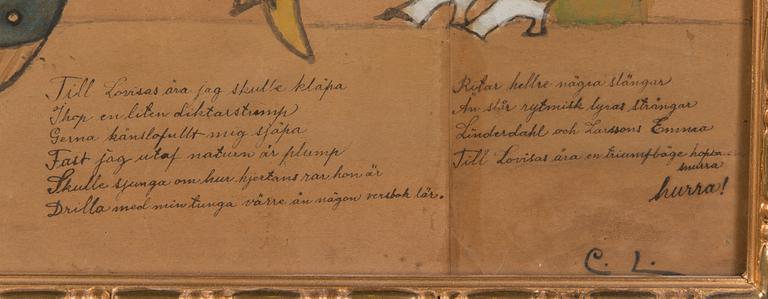 Till Lovisas ära jag skulle kläpa
Ihop en liten diktarstrump
Gerna känslofullt mig sjåpa
Fast jag utaf naturn är plump
Skulle sjunga om hur hjertans rar hon är
Drilla med min tunga värre än någon versbok lär.
Ritar hellre några slängar
Än slår rytmisk lyras strängar
Linderdahl och Larssons Emma
Till Lovisas ära en triumfbåge hopsa-
snurra
hurra!
C. L.